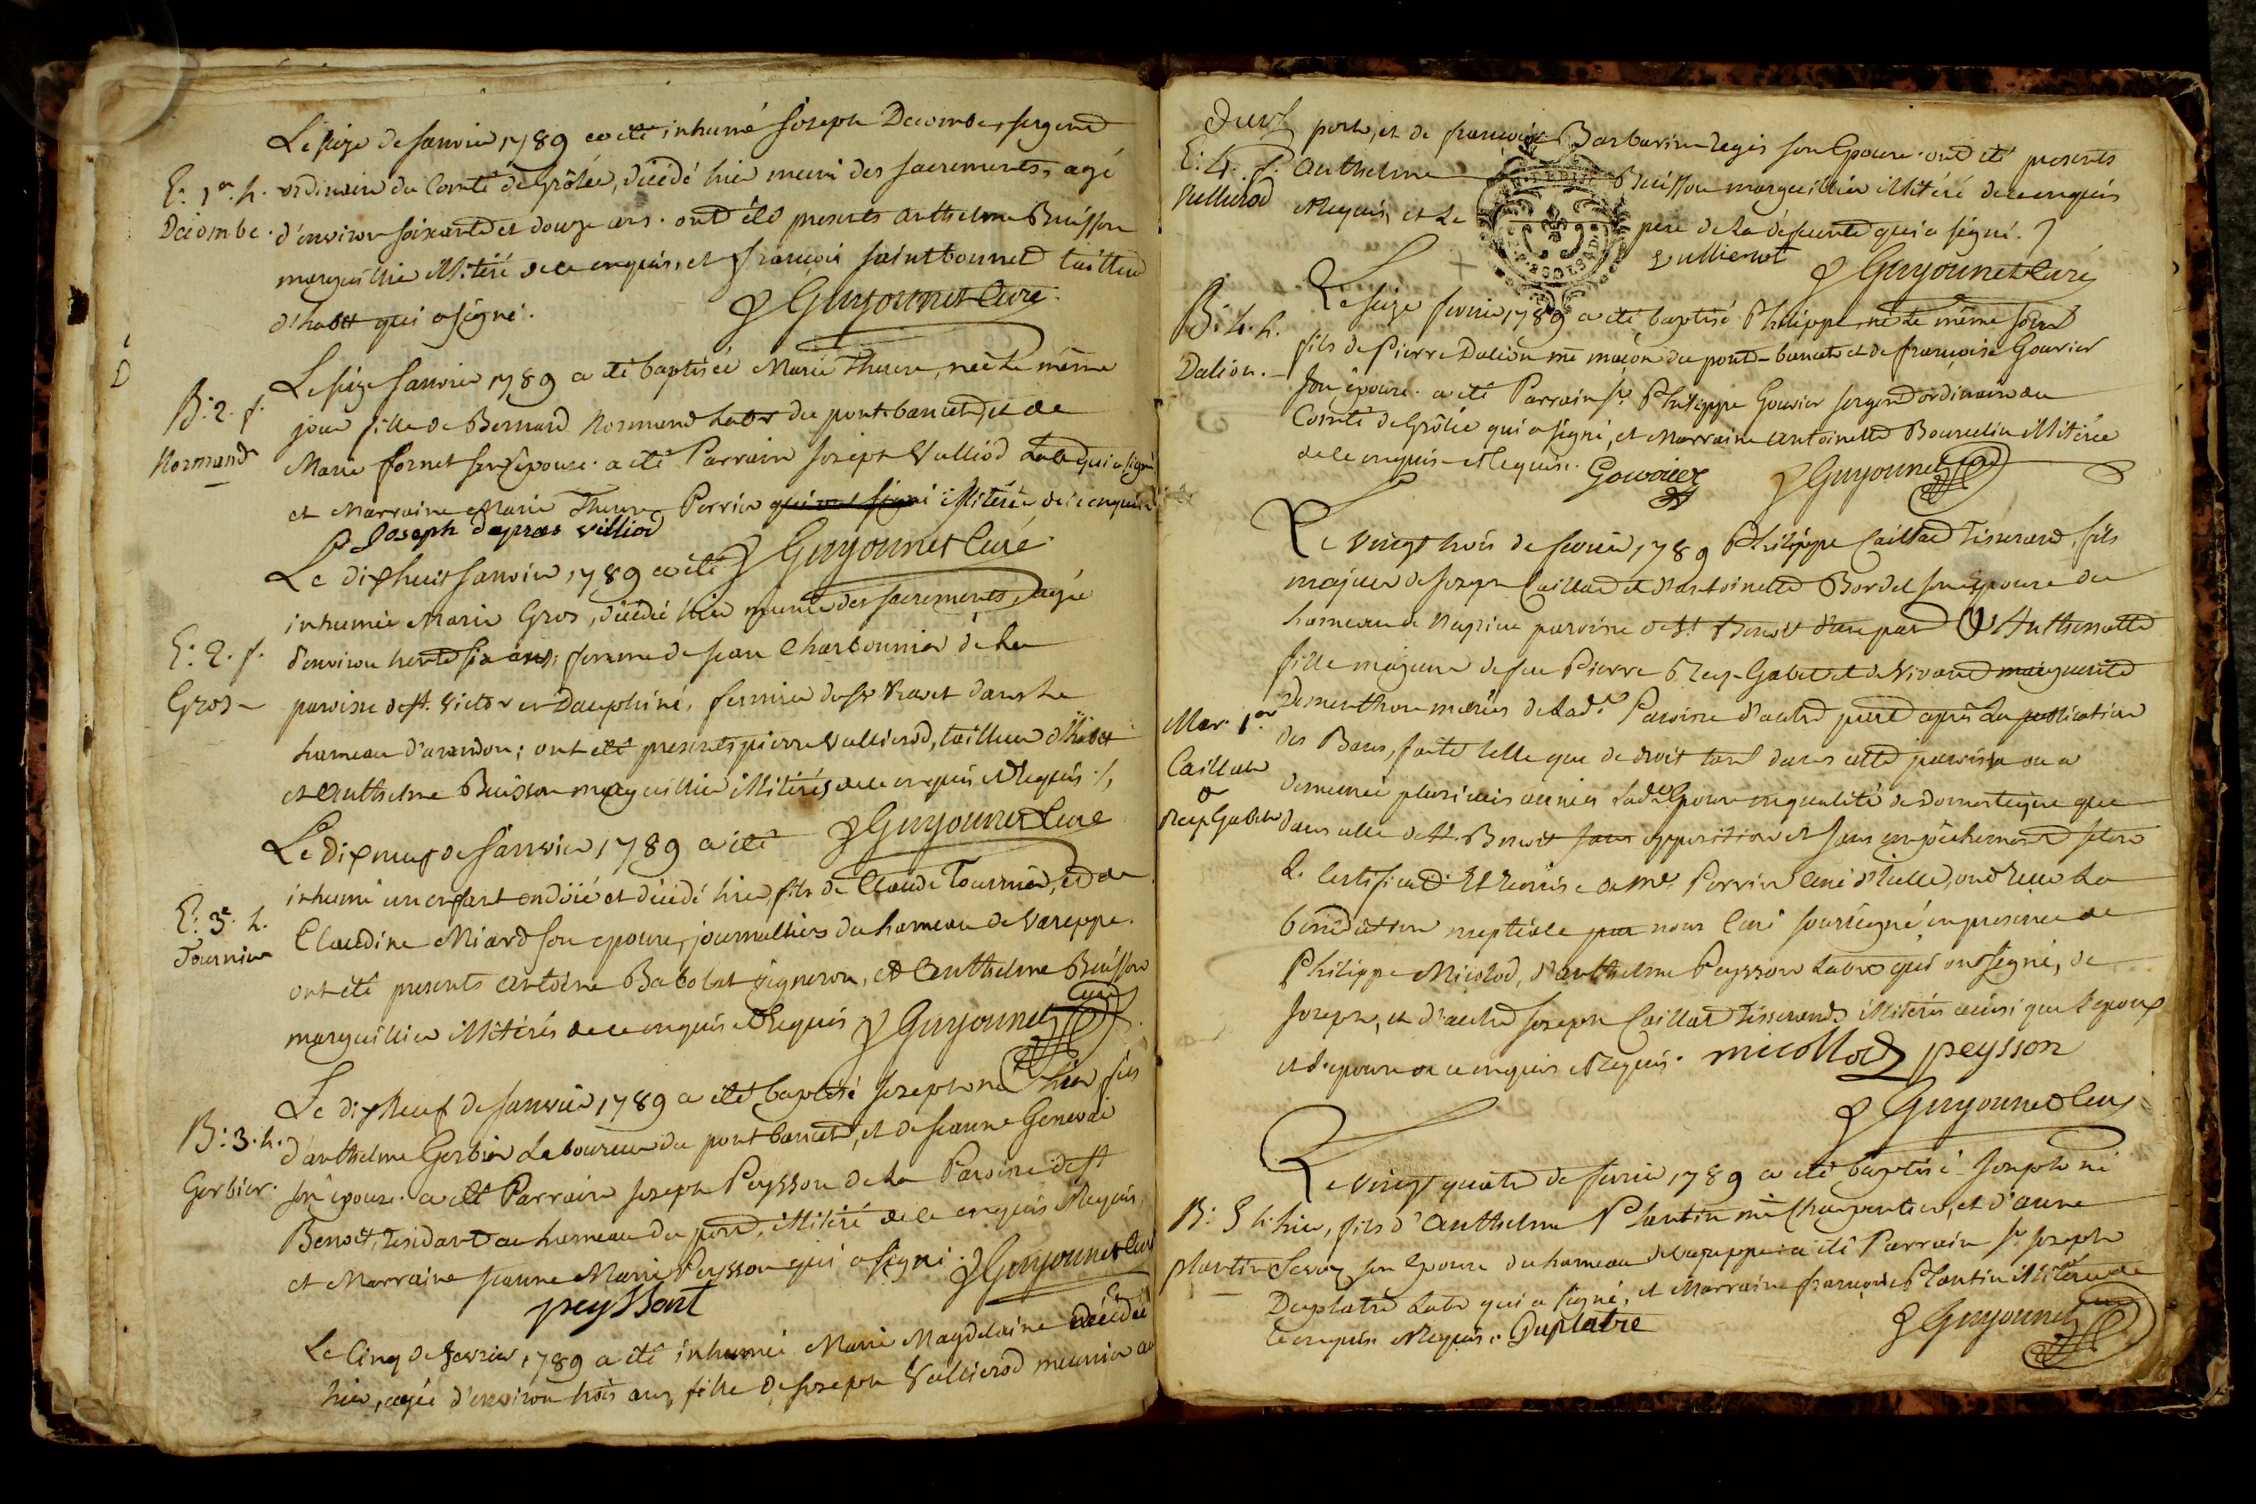 Le seize de Janvier 1789 a été inhumé Joseph Decombe, sergend
E: 1er. h. ordinaire du Comté de Grôlée, décédé hier muni des sacrements, agé
Decombe. d'environ soixante et douze ans. ont été presents anthelme Buisson
marguillier illitéré de ce enquis, et françois saintbonnet tailleur
d'habit qui a signé. Guyonnet Curé.
Le seize Janvier 1789 a été baptisée Marie Therese, née le même
B: 2. f. jour fille de Bernard Normand labr du pont bancet, et de
Normand Marie fornet son épouse. a été Parrain Joseph Vulliod labr qui a signé
et Marraine Marie Therese Perrin illitérée de ce enquise
Joseph dapras villiod
Le dixhuit Janvier 1789 a été Guyonnet Curé.
inhumée Marie Gros, décédée hier munie des sacrements, agée
E: 2. f. d'environ trente six ans; femme de Jean Charbonnier de la
Gros paroisse de St. Victor en Dauphiné, fermier de sr. Ravet dans le
hameau d'arandon; ont été presents pierre Vullierod, tailleur d'habit
et Anthelme Buisson marguillier illitérés de ce enquis et requis.
Le dixneuf de Janvier 1789 a été Guyonnet Curé
inhumé un enfant ondoié et décédé hier, fils de Claude Tournier, et de
E: 3e. h. Claudine Miard son epouse, journalliers du hameau de Vareppe.
Tournier ont été presents antoine Babolat vigneron, et Anthelme Buisson
marguillier illitérés de ce enquis et requis Guyonnet Curé
Le dixneuf de Janvier 1789 a été baptisé Joseph né hier, fils
B: 3. h. d'anthelme Gerbier Laboureur du pont bancet, et de Jeanne Genevai
Gerbier. son epouse. a été Parrain Joseph Peysson de la Paroisse de St
Benoit, residant au hameau du pont, illitéré de ce enquis et requis,
et Marraine Jeanne Marie Peysson qui a signé. Guyonnet Curé
peyssont
Le Cinq de fevrier 1789 a été inhumée Marie Magdelaine décédée
hier, agée d'environ trois ans, fille de Joseph Vullierod meunier au
port, et de françoise Barbarin Regis son Epouse. ont été presents
E: 4. f. Anthelme Buisson marguillier illitéré de ce enquis
Vullierod et requis, et le pere de la défunte qui a signé.
vullierot Guyonnet Curé
Le seize fevrier 1789 a été baptisé Philippe né le même jour
B: 4. h. fils de Pierre Dalion me maçon du pont-bancet et de françoise Gouvier
Dalion. son épouse. a été Parrain sr. Philippe Gouvier sergend ordinaire du
Comté de Grôlée qui a signé, et Marraine Antoinette Bourdin illitérée
de ce enquise et requise. Gouvier Guyonnet Curé
Le vingt trois de fevrier 1789 Philippe Caillat Tisserand, fils
majeur de Joseph Caillat et d'antoinette Bordel son épouse du
hameau de paroisse de St. Benoit d'une part Et Anthelmette
fille majeure de feu Pierre Rey-Gabet et de vivante marguerite
Dementhon mariés de lad.e Paroisse d'autre part après la publication
Mar. 1er des Bans, faite telle que de droit tant dans cette paroisse ou a
Caillat demeurée plusieurs années lad.e Epouse en qualité de domestique que
&
Rey Gabet dans celle de St. Benoit sans opposition et sans empêchement selon
le Certificat Et remise de Mr. Perrin Curé d'icelle, ont reçu la
bénédiction nuptiale par nous Curé soussigné, en presence de
Philippe Micolod, d'anthelme Peysson labrs qui ont signé, de
Joseph, et d'autre Joseph Caillat Tisserands illitérés ainsi que l'epoux
et l'epouse de ce enquis et requis. micollod peysson
Guyonnet Curé
Le vingt quatre de fevrier 1789 a été baptisé Joseph né
B: 5 h. hier, fils d'Anthelme Plantin me Charpentier, et d'anne
Plantin son Epouse du hameau de Vareppe. a été Parrain sr. Joseph
Duplatre labr qui a signé, et Marraine françoise Plantin illitérée de
ce enquise et requise. Duplatre Guyonnet Curé